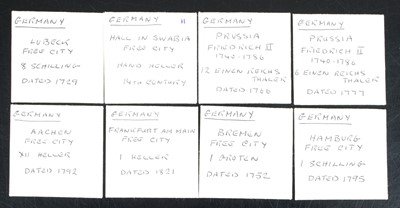 GERMANY
LUBECK
FREE CITY
8 SCHILLING
DATED 1729
GERMANY
HALL IN SWABIA
FREE CITY
HAND HELLER
14TH CENTURY
GERMANY
PRUSSIA
FRIEDRICH II
1740-1786
12 EINEN REICHS
THALER
DATED 1766
GERMANY
PRUSSIA
FRIEDRICH II
1740-1786
6 EINEN REICHS
THALER
DATED 1777
GERMANY
AACHEN
FREE CITY
XII HELLER
DATED 1792
GERMANY
FRANKFURT AM MAIN
FREE CITY
1 HELLER
DATED 1821
GERMANY
BREMEN
FREE CITY
1 GROTEN
DATED 1752
GERMANY
HAMBURG
FREE CITY
1 SCHILLING
DATED 1795